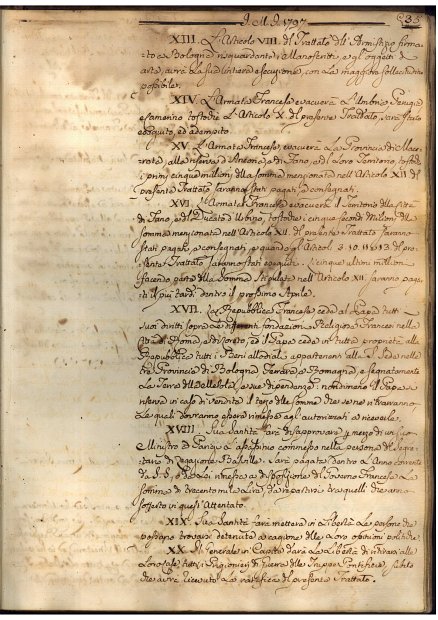 J. M. J. 1797 235
XIII. L'Articolo VIII. del Trattato dell'Armistizio firma-
to a Bologna risguardante i Manoscritti, e gli oggetti di
arte, avrà la sua intiera esecuzione, con la maggiore sollecitudine
possibile.
XIV. L'Armata Francese evacuerà l'Umbria, Perugia
e Camerino tostoche l'Articolo X. del presente Trattato, sarà stato
eseguito, ed adempito.
XV. L'Armata Francese, evacuerà La Provincia di Mace-
rata, alla riserva d'Ancona, di Fano, e di Loro Territorio, tostoche
i primi cinque milioni della somma menzionata nell'Articolo XII del
presente Trattato saranno stati pagati, e consegnati.
XVI. L'Armata Francese evacuerà il Territorio della Città
di Fano, e del Ducato d'Urbino, tostoche i cinque secondi Milioni della
somma menzionata nell'Articolo XII. del presente Trattato saranno
stati pagati, e consegnati, e quando gli Articoli 3. 10. 11 e 13 del pre-
sente Trattato saranno stati eseguiti. I cinque ultimi milioni
facendo parte della somma stipulata nell'Articolo XII. saranno paga-
ti il più tardi dentro il prossimo Aprile.
XVII. La Repubblica Francese cede al Papa tutti i
suoi diritti sopra le differenti fondazioni Religiose Francesi nelle
Città di Roma, e di Loreto, ed il Papa cede in tutta proprietà alla
Repubblica tutti i Beni allodiali appartenenti alla S. Sede nelle
tre Provincie di Bologna, Ferrara, e Romagna, e segnatamente
La Terra della Mesola, e sue dipendenze: nondimeno il Papa si
riserva in caso di vendita il terzo delle somme che se ne ritraranno
Le quali dovranno essere rimesse agl'autorizzati a riceverle.
XVIII. Sua Santità farà disapprovare per mezzo di un suo
Ministro a Parigi l'assassinio commesso nella persona del Segre-
tario di Legazione Basville. Sarà pagata dentro l'Anno corrente
da S. S. e da Lei rimessa a disposizione del Governo Francese La
somma di trecento mila Lire, da repartirsi tra quelli che anno
sofferto in quest'Attentato.
XIX. Sua Santità farà mettere in Libertà Le persone che
possono trovarsi detenute a cagione delle Loro opinioni politiche
XX. Il Generale in Capite darà La Libertà di ritirarsi alle
Loro case tutti i Prigionieri di Guerra delle Truppe Pontificie, subito
che avrà ricevuto La ratifica del presente Trattato.